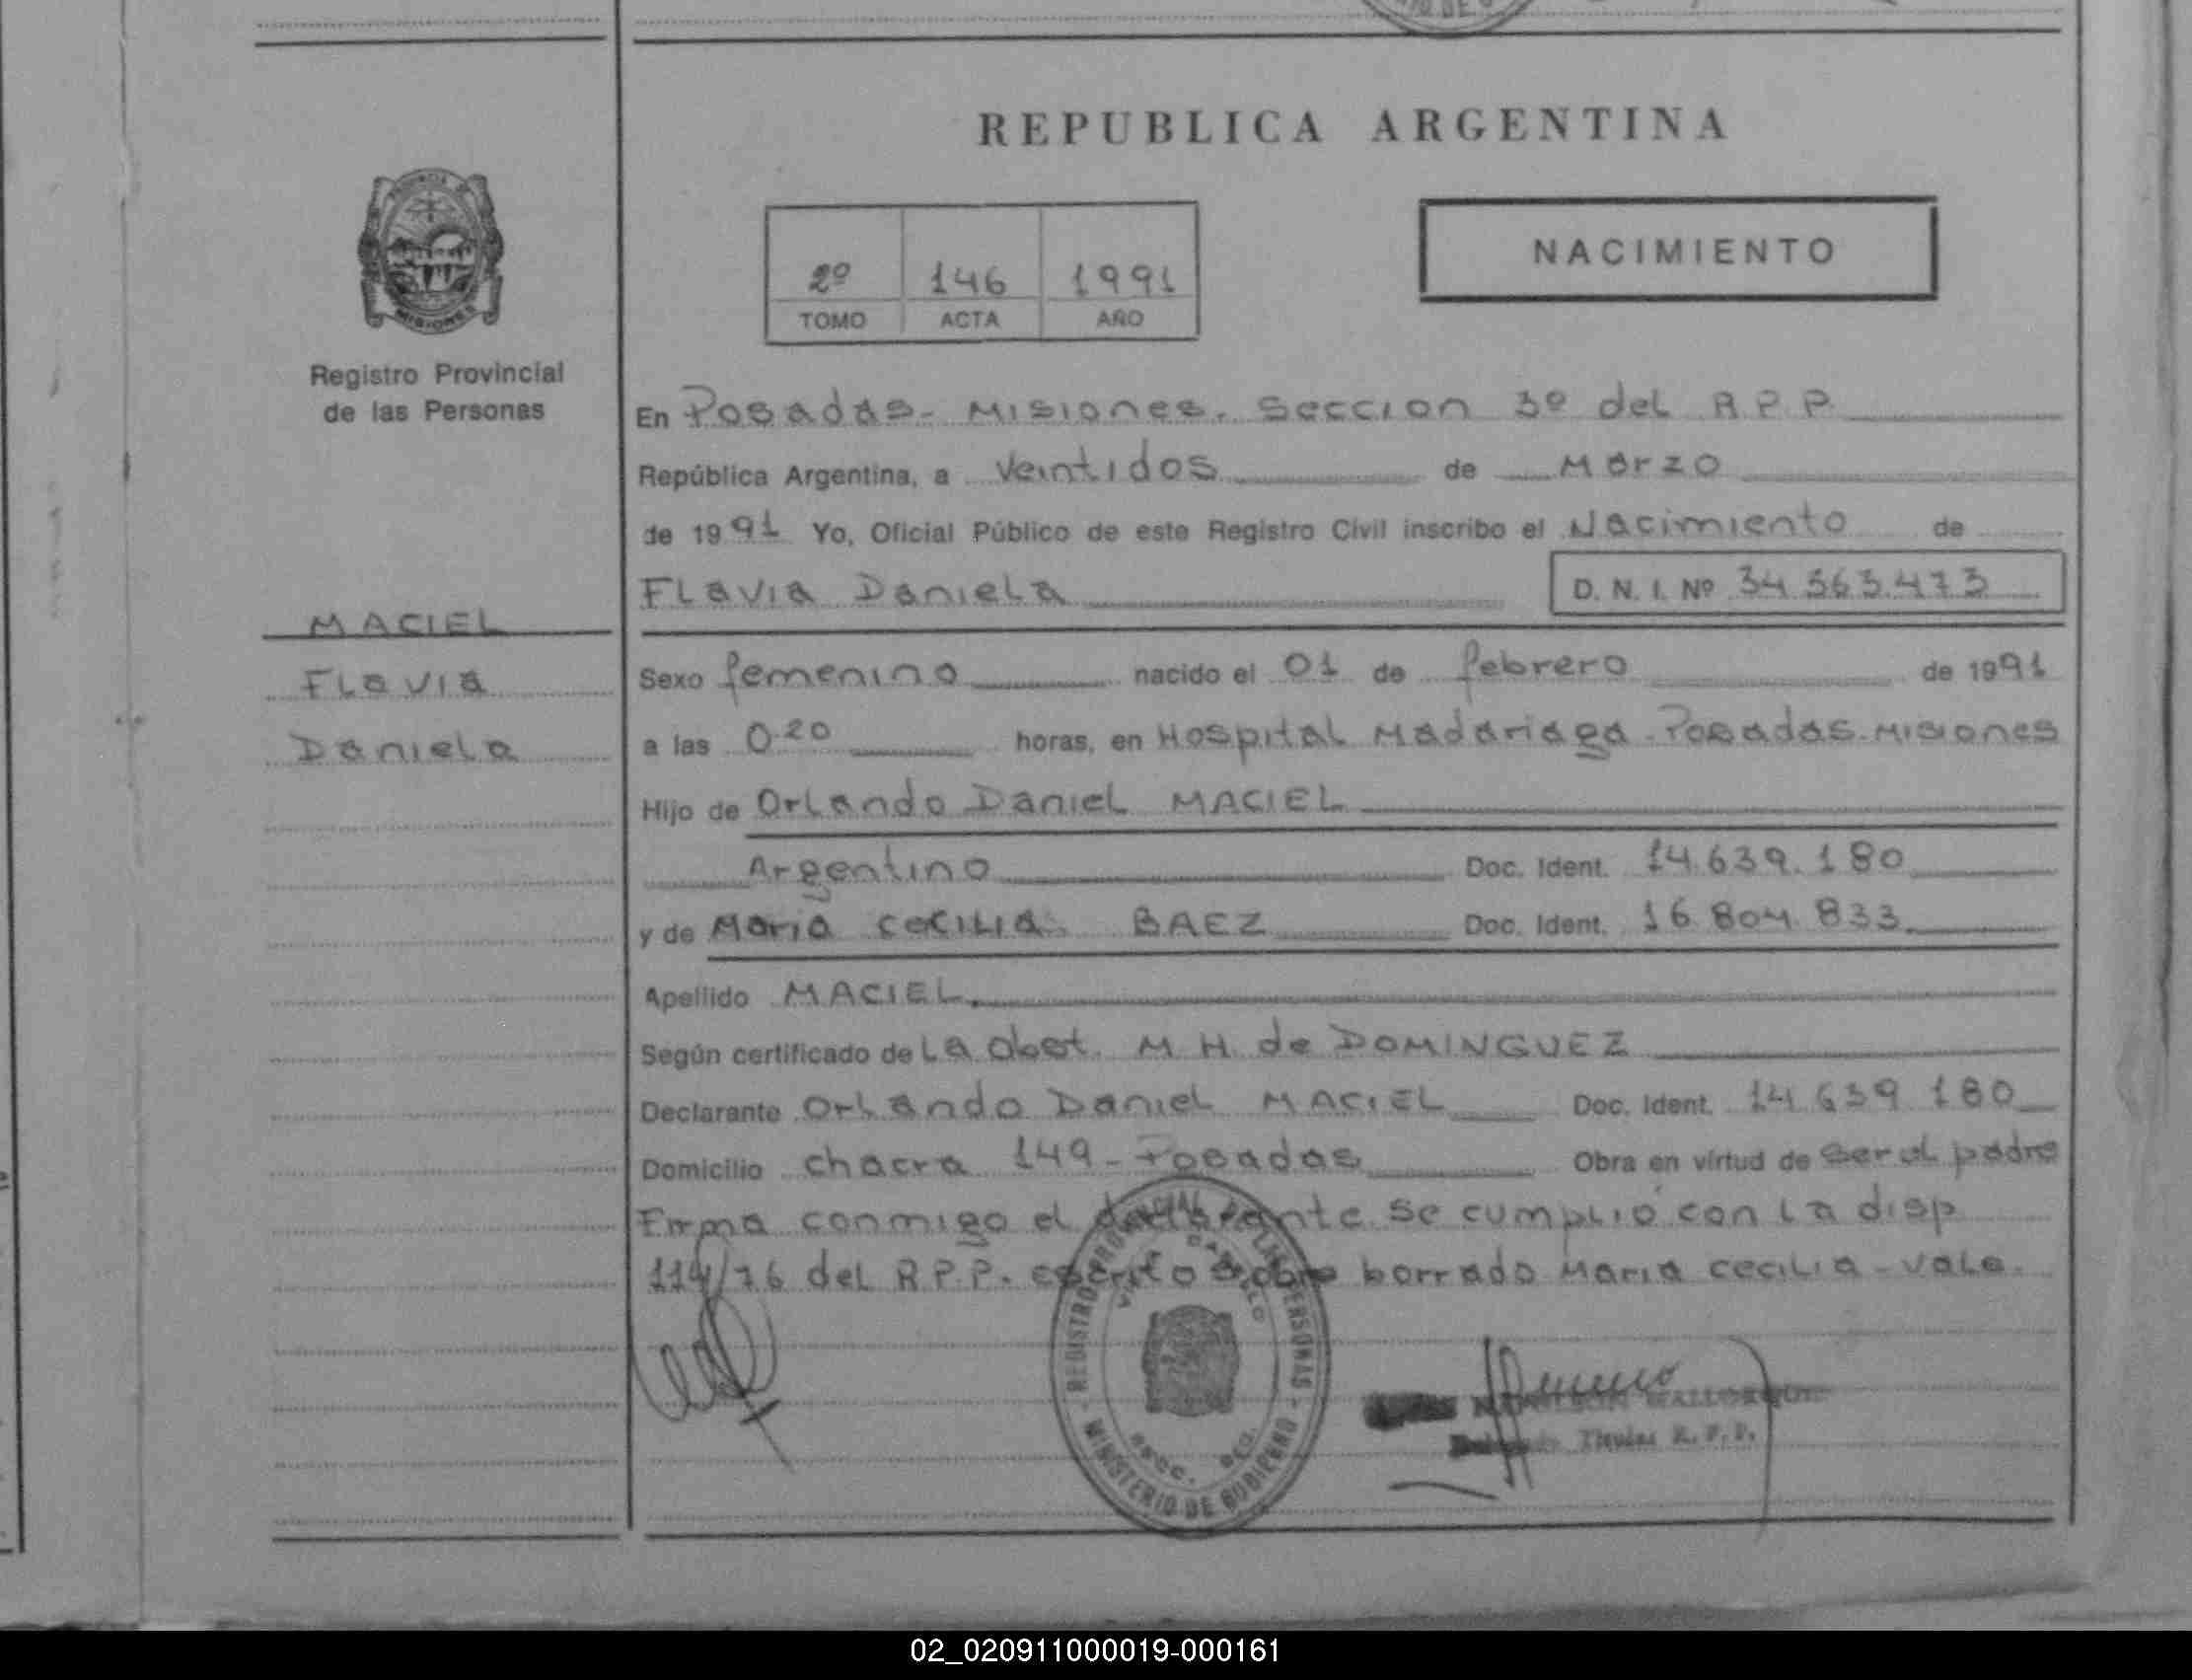 REPUBLICA ARGENTINA
NACIMIENTO
2º 146 1991
TOMO ACTA AÑO
MISIONES
Registro Provincial
de las Personas
En Posadas - Misiones. Seccion 3º del R.P.P.
República Argentina, a veintidos de Marzo
de 1991 Yo, Oficial Público de este Registro Civil inscribo el Nacimiento de
Flavia Daniela D. N. I. Nº 34.563.473
MACIEL
Flavia
Daniela
Sexo femenino nacido el 01 de febrero de 1991
a las 0.20 horas, en Hospital Madariaga - Posadas. Misiones
Hijo de Orlando Daniel MACIEL
Argentino Doc. Ident. 14.639.180
y de Maria Cecilia BAEZ Doc. Ident. 16.804.833.
Apellido MACIEL.
Según certificado de La Obst. M. H. de DOMINGUEZ
Declarante Orlando Daniel MACIEL Doc. Ident. 14.639.180
Domicilio chacra 149 - Posadas Obra en virtud de ser el padre
Firma conmigo el declarante se cumplió con la disp
114/76 del R.P.P. escrito sobre borrado Maria Cecilia - vale.
REGISTRO PROVINCIAL DE LAS PERSONAS
MINISTERIO DE GOBIERNO
Titular R. P. P.
02_020911000019-000161